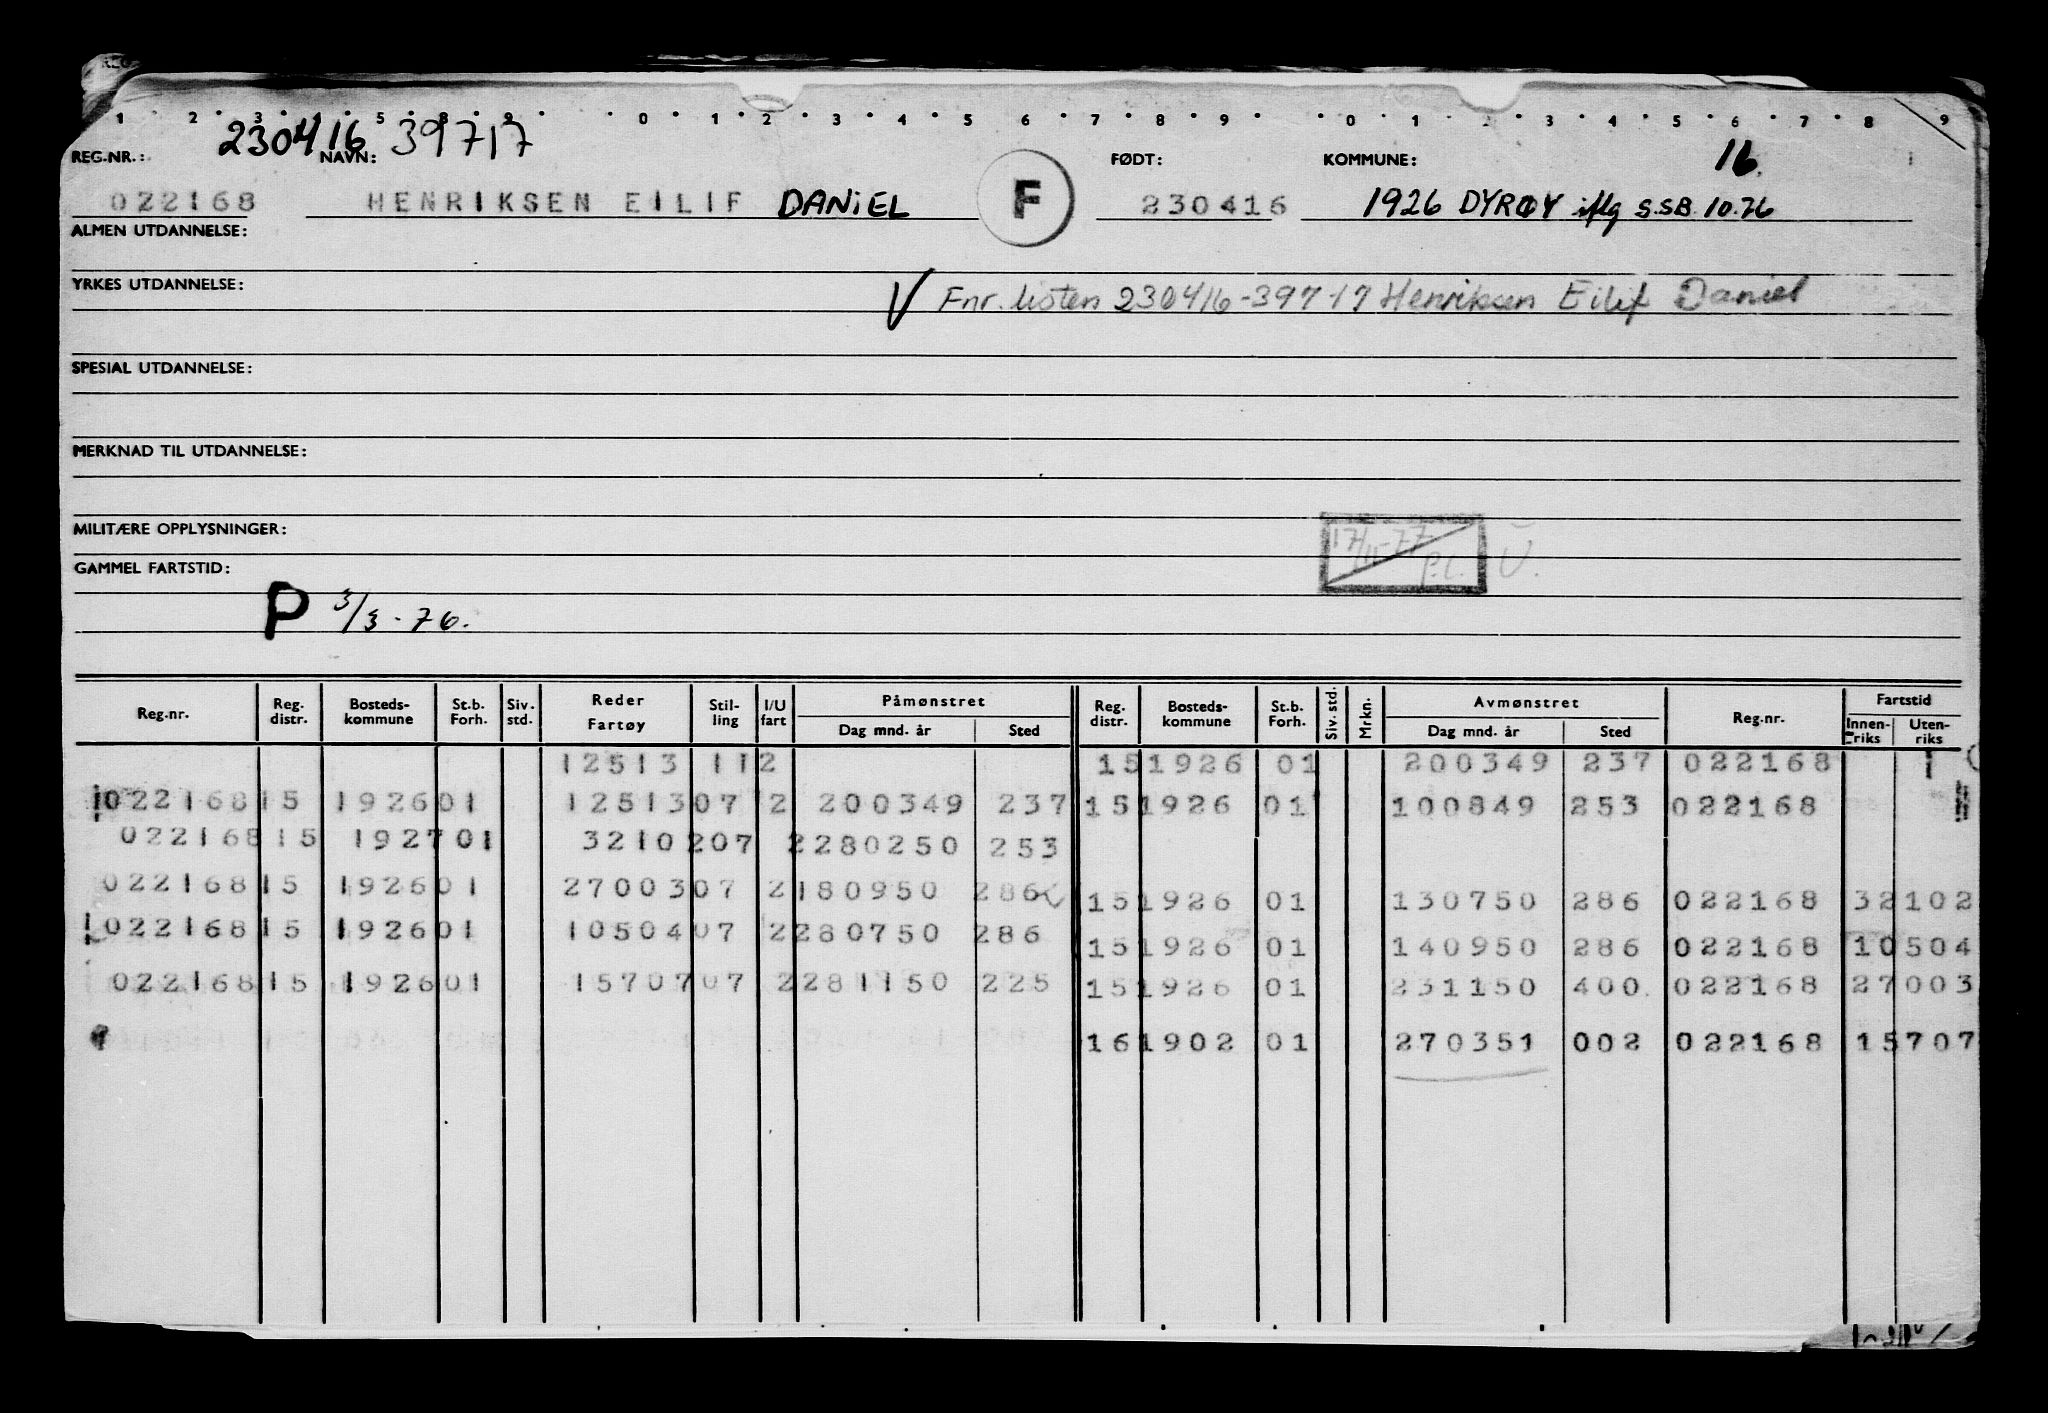 1 2 3 5 8 9 0 1 2 3 4 5 6 7 8 9 0 1 2 3 4 5 6 7 8 9
230416 39717
REG.NR.: NAVN: FØDT: KOMMUNE: 16.
022168 HENRIKSEN EILIF DANIEL F 230416 1926 DYRØY iflg S.SB. 10.76
ALMEN UTDANNELSE:
YRKES UTDANNELSE: V Fnr. listen 230416-39717 Henriksen Eilif Daniel
SPESIAL UTDANNELSE:
MERKNAD TIL UTDANNELSE:
MILITÆRE OPPLYSNINGER: 17/11-77 P.L. V.
GAMMEL FARTSTID:
P 3/3-76.
Reg.nr. Reg. distr. Bosteds-kommune St.b. Forh. Siv. std. Reder Fartøy Stil-ling I/U fart Påmønstret Dag mnd. år Sted Reg. distr. Bosteds-kommune St.b. Forh. Siv. std. Mrkn. Avmønstret Dag mnd. år Sted Reg.nr. Fartstid Innen-riks Uten-riks
12513 112 151926 01 200349 237 022168
022168 15 1926 01 12513 07 2 200349 237 151926 01 100849 253 022168
022168 15 1927 01 32102 07 2 280250 253
022168 15 1926 01 27003 07 2 180950 286 151926 01 130750 286 022168 32102
022168 15 1926 01 10504 07 2 280750 286 151926 01 140950 286 022168 10504
022168 15 1926 01 15707 07 2 281150 225 151926 01 231150 400 022168 27003
161902 01 270351 002 022168 15707